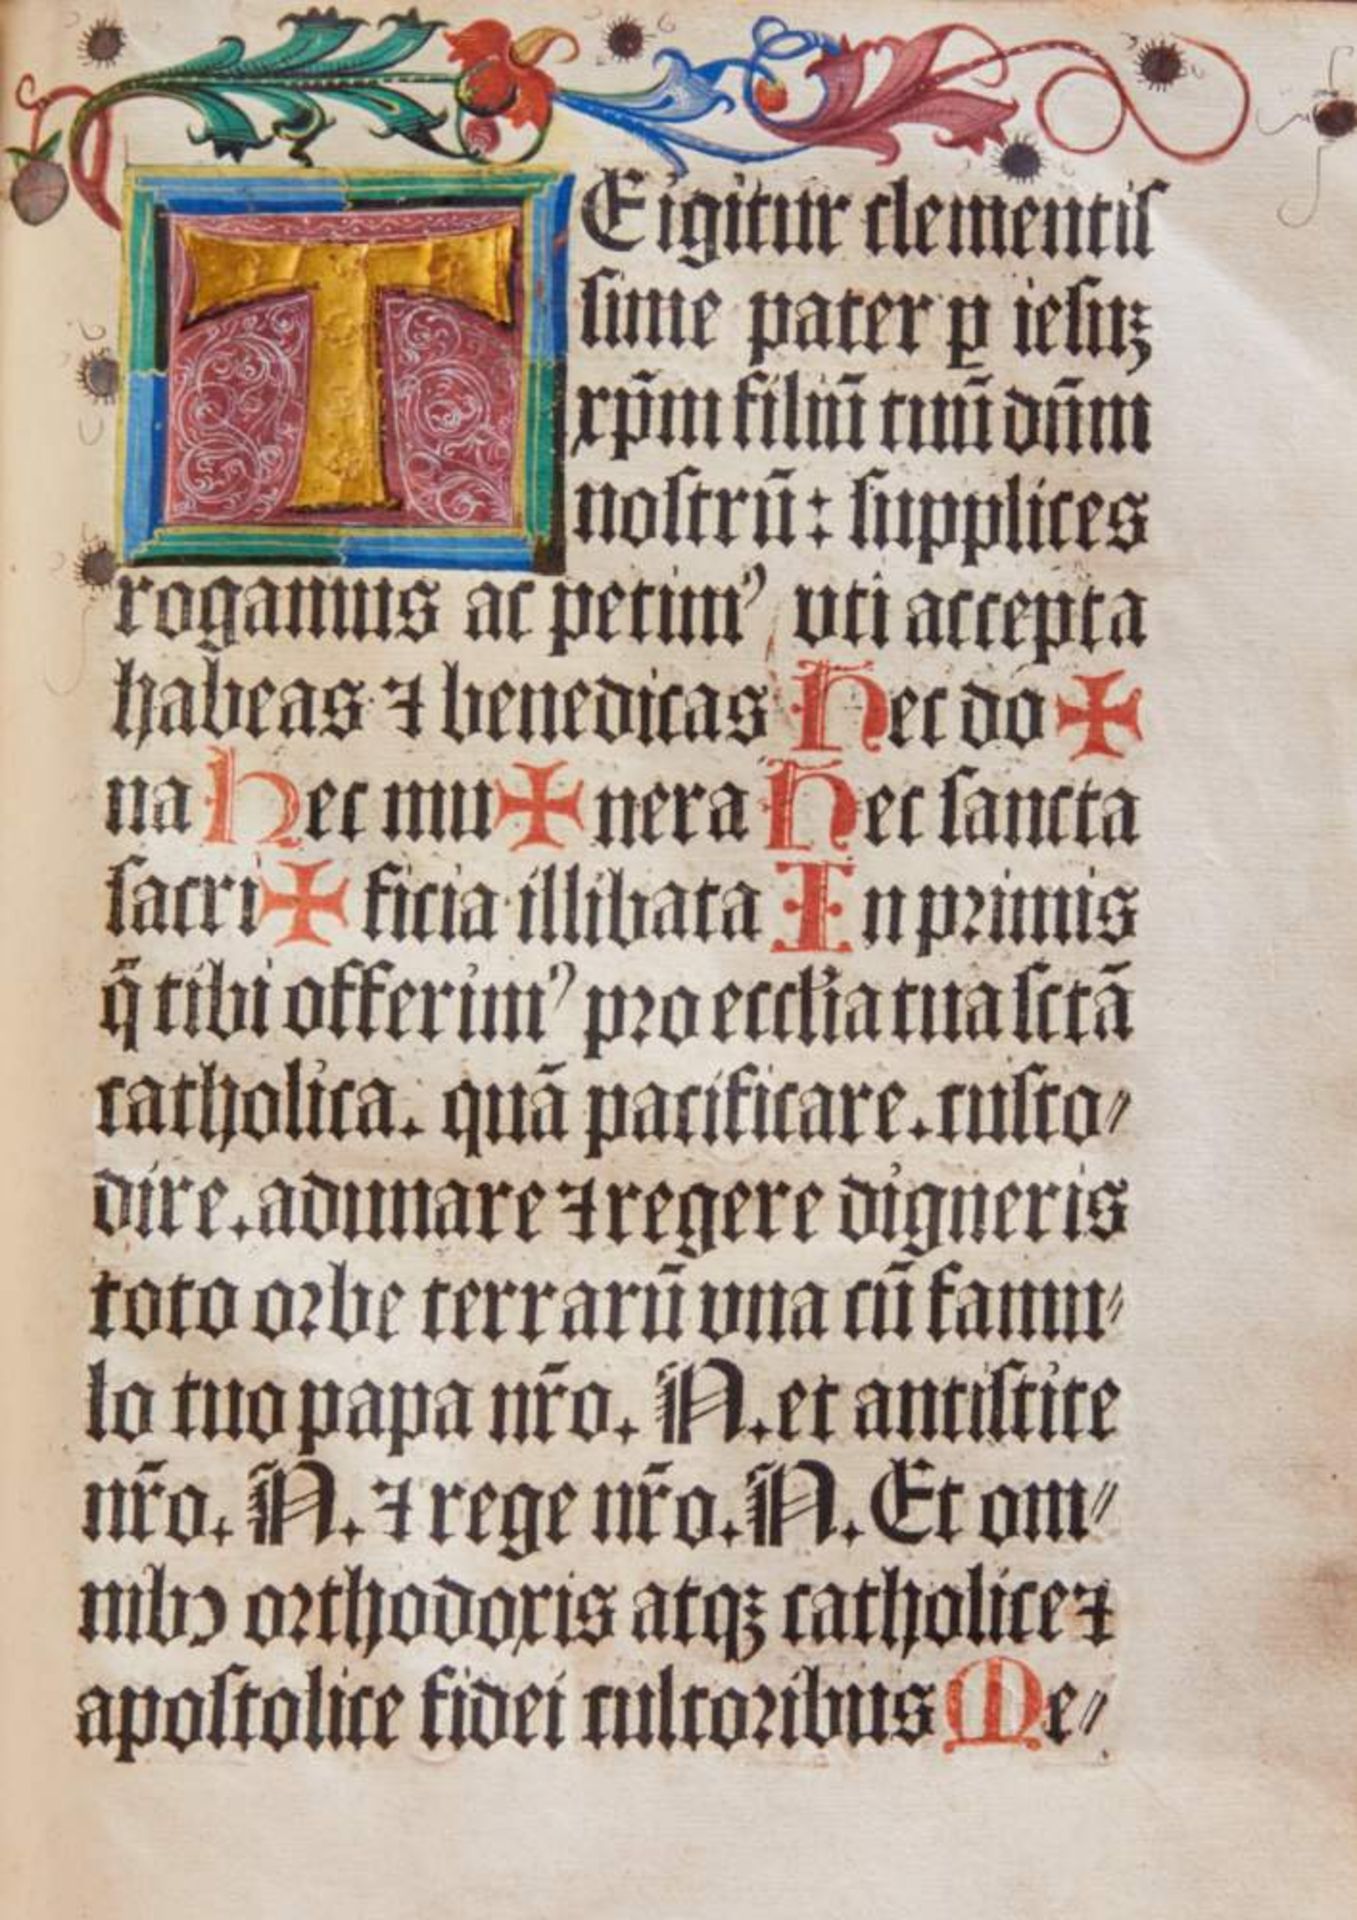 TEigitur clementiſ
ſime pater ꝑ ieſuꝫ
xp̄m filiū tuū dn̄m
noſtrū: ſupplices
rogamus ac petimꝰ uti accepta
habeas ⁊ benedicas Hec do✠
na Hec mu✠nera Hec ſancta
ſacri✠ficia illibata In pꝛimis
q̄ tibi offerimꝰ pꝛo eccľia tua ſctā
catholica. quā pacificare. cuſto⸗
dire. adunare ⁊ regere digneris
toto oꝛbe terrarū vna cū famu⸗
lo tuo papa nr̄o. N. et antiſtite
nr̄o. N. ⁊ rege nr̄o. N. Et om⸗
nibꝰ oꝛthodoxis atqꝫ catholice ⁊
apoſtolice fidei cultoꝛibus Me⸗